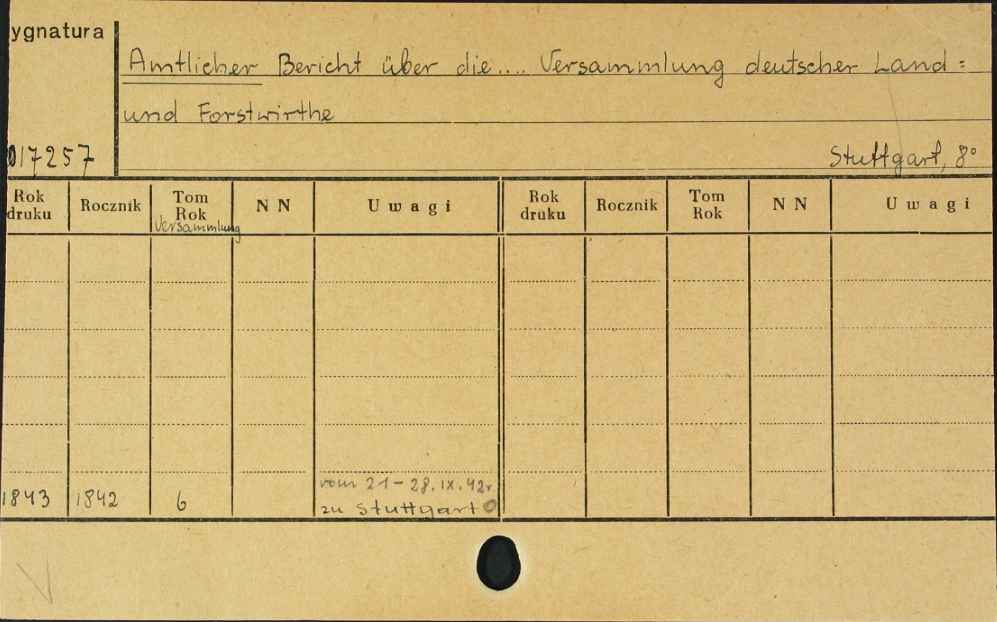 ygnatura
Amtlicher Bericht über die.... Versammlung deutscher Land=
und Forstwirthe
017257
Stuttgart, 8°
Rok druku Rocznik Tom Rok Versammlung NN Uwagi Rok druku Rocznik Tom Rok NN Uwagi
1843 1842 6 vom 21-28.IX.42r.
zu Stuttgart